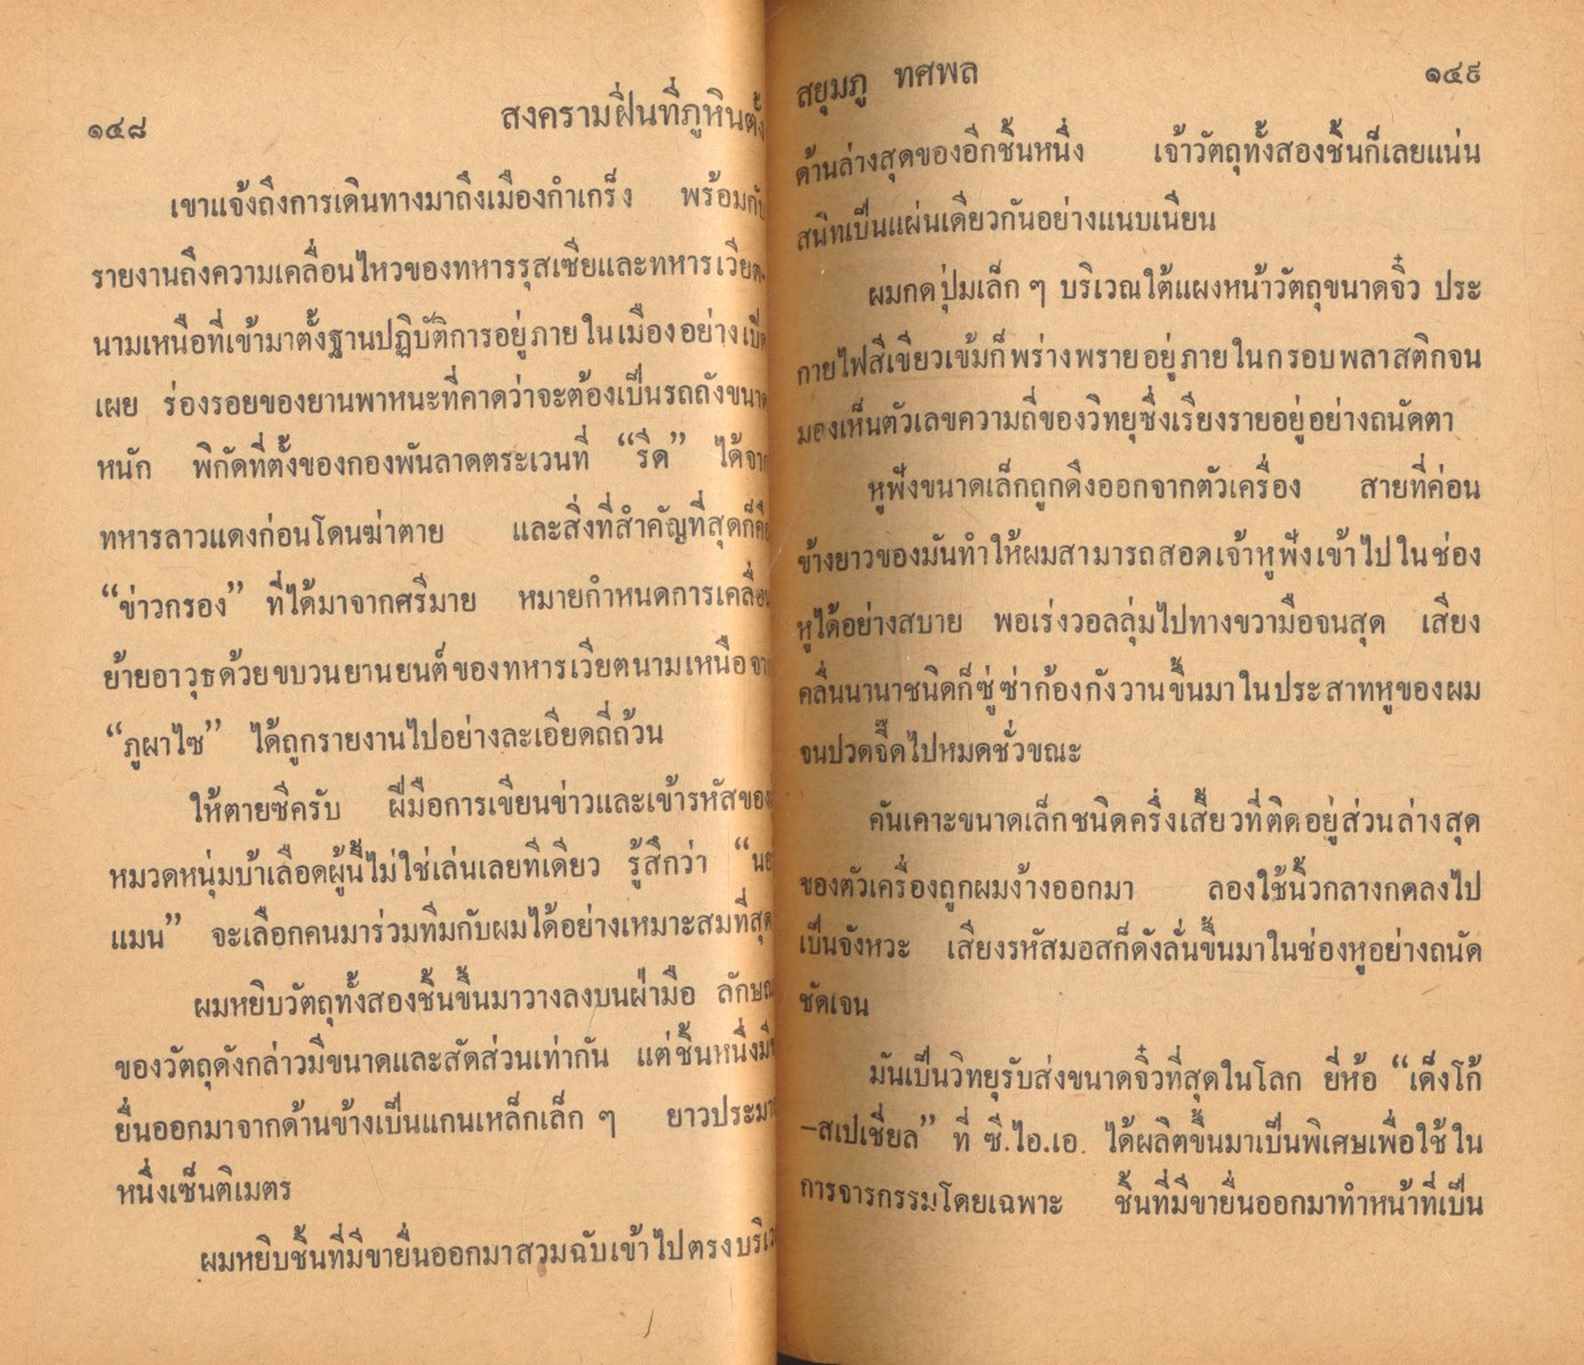 ๑๔๘
สงครามฝิ่นที่ภูหินตั้ง
เขาแจ้งถึงการเดินทางมาถึงเมืองกำเกร็ง พร้อมกับ
รายงานถึงความเคลื่อนไหวของทหารรุสเซียและทหารเวียด
นามเหนือที่เข้ามาตั้งฐานปฏิบัติการอยู่ภายในเมืองอย่างเปิด
เผย ร่องรอยของยานพาหนะที่คาดว่าจะต้องเป็นรถถังขนาด
หนัก พิกัดที่ตั้งของกองพันลาดตระเวนที่ “รีด” ได้จาก
ทหารลาวแดงก่อนโดนฆ่าตาย และสิ่งที่สำคัญที่สุดก็คือ
“ข่าวกรอง” ที่ได้มาจากศรีมาย หมายกำหนดการเคลื่อน
ย้ายอาวุธด้วยขบวนยานยนต์ของทหารเวียตนามเหนือจาก
“ภูผาไซ” ได้ถูกรายงานไปอย่างละเอียดถี่ถ้วน
ให้ตายซีครับ ฝีมือการเขียนข่าวและเข้ารหัสของ
หมวดหนุ่มบ้าเลือดผู้นี้ไม่ใช่เล่นเลยทีเดียว รู้สึกว่า
แมน” จะเลือกคนมาร่วมทีมกับผมได้อย่างเหมาะสมที่สุด
ผมหยิบวัตถุทั้งสองชิ้นขึ้นมาวางลงบนฝ่ามือ ลักษณ
ของวัตถุดังกล่าวมีขนาดและสัดส่วนเท่ากัน แต่ชิ้นหนึ่งมี
ยื่นออกมาจากด้านข้างเป็นแกนเหล็กเล็ก ๆ ยาวประมา
หนึ่งเซ็นติเมตร
ผมหยิบชิ้นที่มีขายื่นออกมาสวมฉับเข้าไปตรงบริเว
สยุมภู ทศพล
๑๔๙
ด้านล่างสุดของอีกชิ้นหนึ่ง เจ้าวัตถุทั้งสองชิ้นก็เลยแน่น
สนิทเป็นแผ่นเดียวกันอย่างแนบเนียน
ผมกดปุ่มเล็ก ๆ บริเวณใต้แผงหน้าวัตถุขนาดจิ๋ว ประ
กายไฟสีเขียวเข้มก็พร่างพรายอยู่ภายในกรอบพลาสติกจน
มองเห็นตัวเลขความถี่ของวิทยุซึ่งเรียงรายอยู่อย่างถนัดตา
หูฟังขนาดเล็กถูกดึงออกจากตัวเครื่อง สายที่ค่อน
ข้างยาวของมันทำให้ผมสามารถสอดเจ้าหูฟังเข้าไปในช่อง
หูได้อย่างสบาย พอเร่งวอลลุ่มไปทางขวามือจนสุด เสียง
คลื่นนานาชนิดก็ซู่ซ่าก้องกังวานขึ้นมาในประสาทหูของผม
จนปวดจี๊ดไปหมดชั่วขณะ
คันเคาะขนาดเล็กชนิดครึ่งเสี้ยวที่ติดอยู่ส่วนล่างสุด
ของตัวเครื่องถูกผมง้างออกมา ลองใช้นิ้วกลางกดลงไป
เป็นจังหวะ เสียงรหัสมอสก็ดังลั่นขึ้นมาในช่องหูอย่างถนัด
ชัดเจน
มันเป็นวิทยุรับส่งขนาดจิ๋วที่สุดในโลก ยี่ห้อ “เด็งโก้
–สเปเชี่ยล” ที่ ซี.ไอ.เอ. ได้ผลิตขึ้นมาเป็นพิเศษเพื่อใช้ใน
การจารกรรมโดยเฉพาะ ชิ้นที่มีขายื่นออกมาทำหน้าที่เป็น